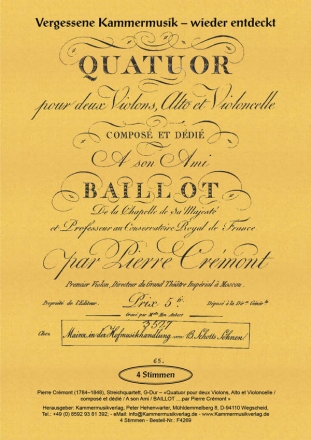 Vergessene Kammermusik – wieder entdeckt
QUATUOR
pour deux Violons, Alto et Violoncelle
COMPOSÉ ET DÉDIÉ
A son Ami
BAILLOT
De la Chapelle de Sa Majesté
et Professeur au Conservatoire Royal de France
par Pierre Crémont
Premier Violon, Directeur du Grand Théâtre Impérial à Moscou.
Propriété de l'Editeur. Prix 5 Déposé à la
Gravé par
3577
Chez Mainz, in der Hofmusikhandlung von B. Schotts Söhnen.
65.
4 Stimmen
Pierre Crémont (1784–1846), Streichquartett, G-Dur – «Quatuor pour deux Violons, Alto et Violoncelle /
composé et dédié / A son Ami / BAILLOT ... par Pierre Crémont »
Herausgeber: Kammermusikverlag, Peter Hehenwärter, Mühldemmelberg 8, D-94110 Wegscheid,
Tel.: +49 (0) 8592 93 81 392; - eMail: info@Kammermusikverlag.de – www.Kammermusikverlag.de
4 Stimmen - Bestell-Nr.: F4269